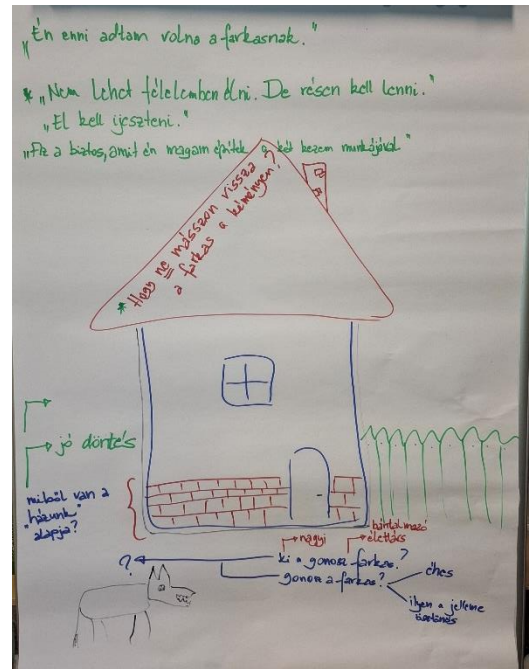 „Én enni adtam volna a farkasnak."
* „Nem lehet félelemben élni. De résen kell lenni."
„El kell ijeszteni."
„Az a biztos, amit én magam építek a két kezem munkájával"
* Hogy ne másszon vissza
a farkas a kéményen?
jó döntés
miből van a
"házunk"
alapja?
→ nagyi
bántalmazó
élettárs
?
ki a gonosz farkas?
gonosz a farkas?
éhes
ilyen a jelleme
ösztönös